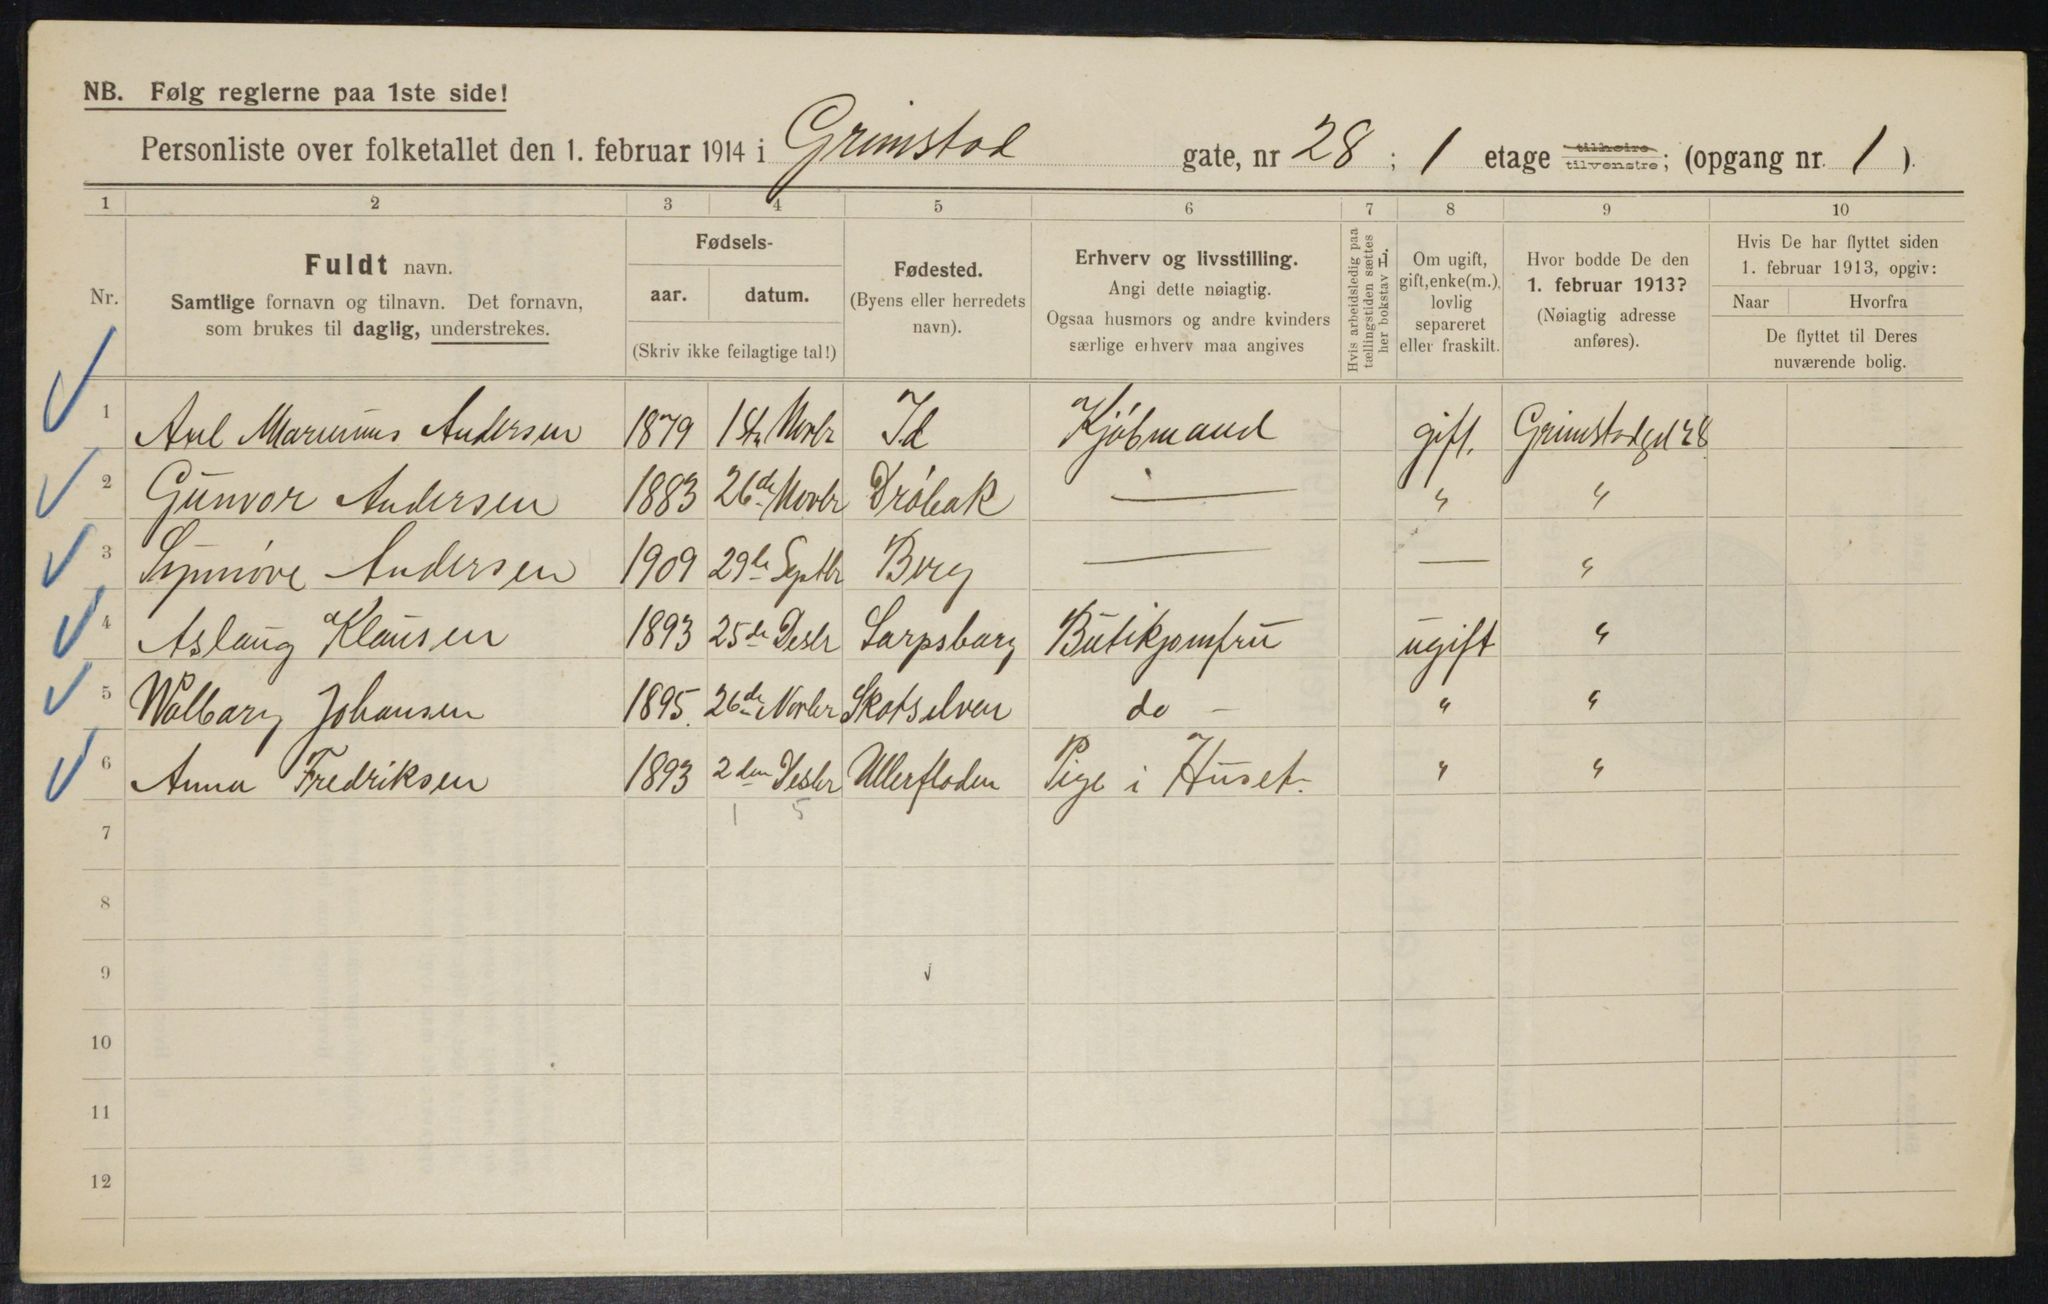 NB. Følg reglerne paa 1ste side!
Personliste over folketallet den 1. februar 1914 i Grimstad gate, nr 28 ; 1 etage tilhøire tilvenstre; (opgang nr. 1 ).
1 2 3 4 5 6 7 8 9 10
Nr.
Fuldt navn.
Samtlige fornavn og tilnavn. Det fornavn,
som brukes til daglig, understrekes.
Fødsels-
aar. datum.
(Skriv ikke feilagtige tal!)
Fødested.
(Byens eller herredets
navn).
Erhverv og livsstilling.
Angi dette nøiagtig.
Ogsaa husmors og andre kvinders
særlige erhverv maa angives
Hvis arbeidsledig paa
tællingstiden sættes
her bokstav H.
Om ugift,
gift, enke(m.),
lovlig
separeret
eller fraskilt.
Hvor bodde De den
1. februar 1913?
(Nøiagtig adresse
anføres).
Hvis De har flyttet siden
1. februar 1913, opgiv:
Naar Hvorfra
De flyttet til Deres
nuværende bolig.
1 Axel Marinius Andersen 1879 1ste Novbr Id Kjöbmand gift. Grimstadgd 28
2 Gunvor Andersen 1883 26de Novbr Dröbak — " "
3 Synnöve Andersen 1909 29de Septbr Berg — — "
4 Aslaug Klausen 1893 25de Desbr Sarpsborg Butikjomfru ugift "
5 Walborg Johansen 1895. 26de Novbr Skotselven do - " "
6 Anna Fredriksen 1893 2den Desbr Ullerfloden Pige i Huset. " "
1 5
7
8
9
10
11
12